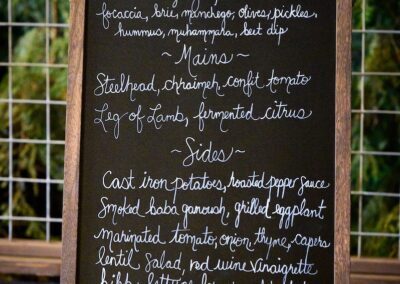 focaccia, brie, manchego, olives, pickles,
hummus, muhammara, beet dip
~Mains~
Steelhead, chraimeh, confit tomato
Leg of Lamb, fermented citrus
~Sides~
Cast iron potatoes, roasted pepper sauce
Smoked baba ganoush, grilled eggplant
marinated tomato, onion, thyme, capers
lentil salad, red wine vinaigrette
bibb lettuce